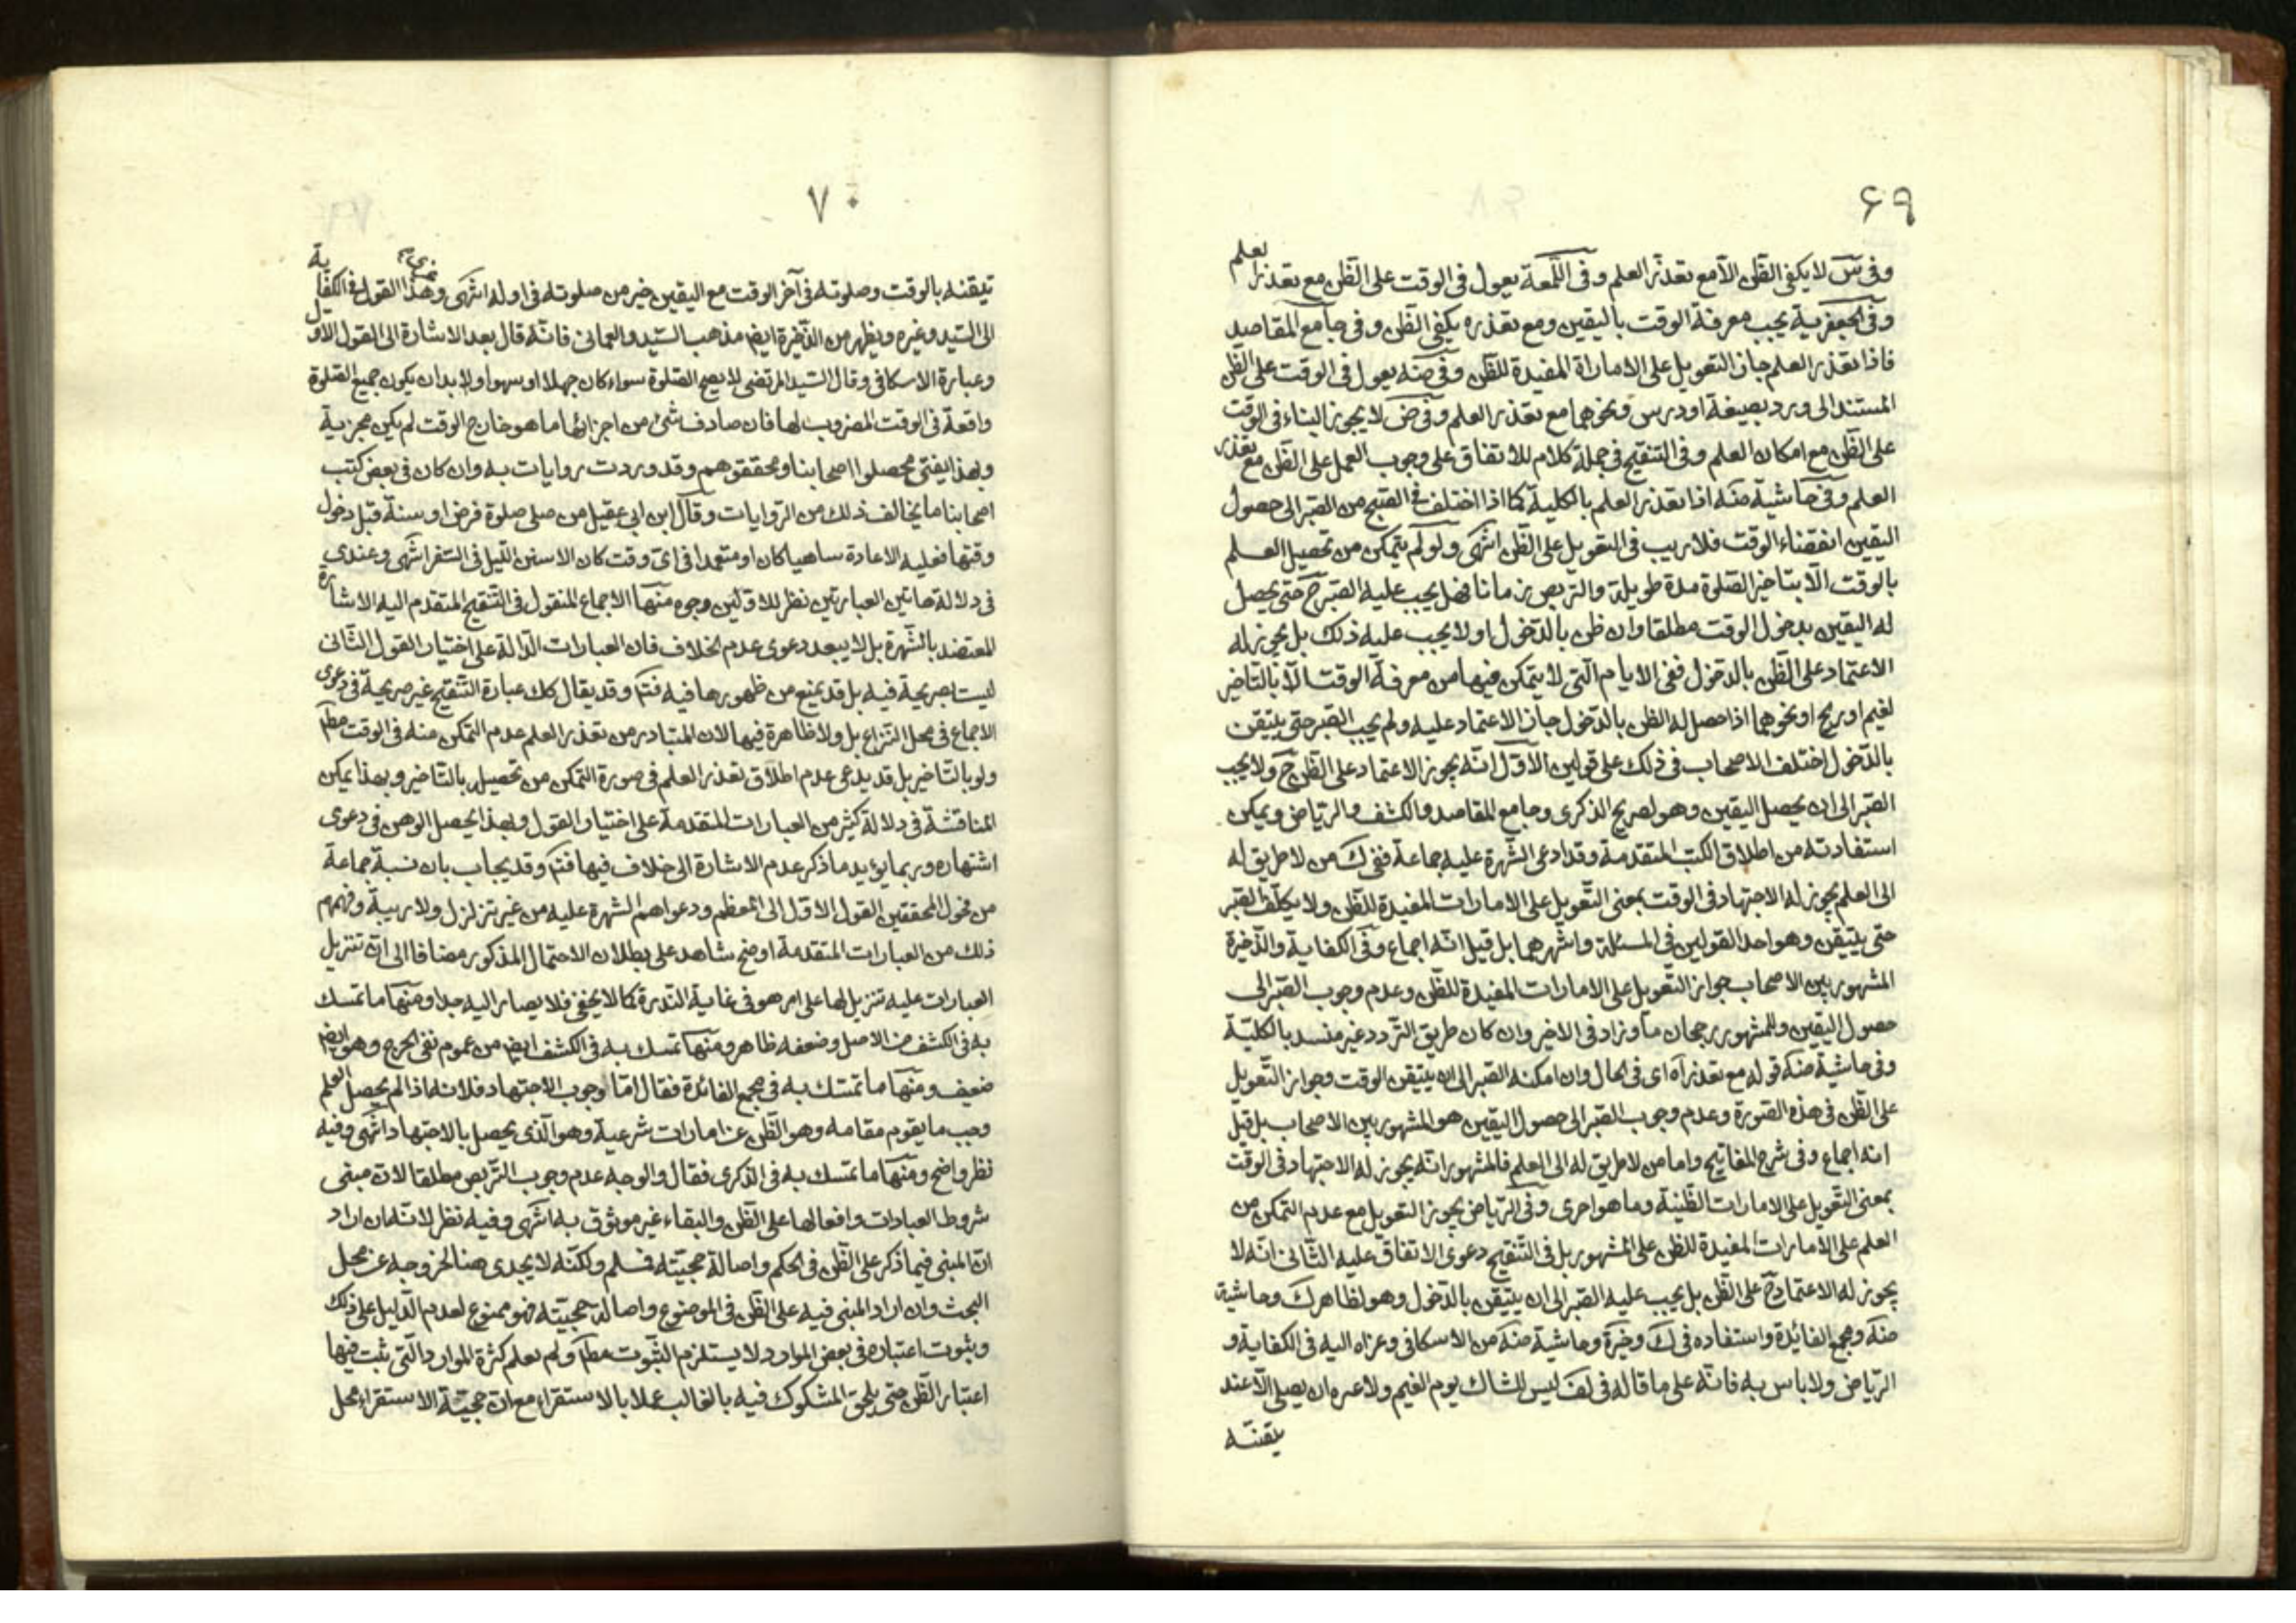 ۶۹
وفى س لا يكفى الظن الا مع تعذر العلم وفى اللمعة يعول فى الوقت على الظن مع تعذر العلم
وفى الجعفرية يجب معرفة الوقت باليقين ومع تعذره يكفى الظن وفى جامع المقاصد
فاذا تعذر العلم جاز التعويل على الامارات المفيدة للظن وفى ضه يعول فى الوقت على الظن
المستند الى ورد بصيغة او درس ونحوهما مع تعذر العلم وفى ض لا يجوز البناء فى الوقت
على الظن مع امكان العلم وفى التنقيح فى جملة كلام للاتفاق على وجوب العمل على الظن مع تعذر
العلم وفى حاشية منه اذا تعذر العلم بالكلية كما اذا اختلف فى الصبر الى حصول
اليقين انقضاء الوقت فلا ريب فى التعويل على الظن انتهى ولو لم يتمكن من تحصيل العلم
بالوقت الا بتاخير الصلوة مدة طويلة والتربص زمانا فهل يجب عليه الصبر ح حتى يحصل
له اليقين بدخول الوقت مطلقا وان ظن بالدخول او لا يجب عليه ذلك بل يجوز له
الاعتماد على الظن بالدخول ففى الايام التى لا يتمكن فيها من معرفة الوقت الا بالتاخير
لغيم او ريح او نحوهما اذا حصل له الظن بالدخول جاز الاعتماد عليه ولم يجب الصبر حتى يتيقن
بالدخول اختلف الاصحاب فى ذلك على قولين الاول انه يجوز الاعتماد على الظن ح ولا يجب
الصبر الى ان يحصل اليقين وهو لصريح الذكرى وجامع المقاصد والكشف والرياض ويمكن
استفادته من اطلاق الكتب المتقدمة وقد ادعى الشهرة عليه جماعة ففى ك من لا طريق له
الى العلم يجوز له الاجتهاد فى الوقت بمعنى التعويل على الامارات المفيدة للظن ولا يكلف الصبر
حتى يتيقن وهو احد القولين فى المسئلة واشهرهما بل قيل انه اجماع وفى الكفاية والذخيرة
المشهور بين الاصحاب جواز التعويل على الامارات المفيدة للظن وعدم وجوب الصبر الى
حصول اليقين وللمشهور رجحان ما وزاد فى الاخير وان كان طريق التردد غير منسد بالكلية
وفى حاشية منه قوله مع تعذر اه اى فى الحال وان امكنه الصبر الى ان يتيقن الوقت وجواز التعويل
على الظن فى هذه الصورة وعدم وجوب الصبر الى حصول اليقين هو المشهور بين الاصحاب بل قيل
انه اجماع وفى شرح المفاتيح واما من لا طريق له الى العلم فالمشهور انه يجوز له الاجتهاد فى الوقت
بمعنى التعويل على الامارات الظنية وما هو احرى وفى الرياض يجوز التعويل مع عدم التمكن من
العلم على الامارات المفيدة للظن على المشهور بل فى التنقيح دعوى الاتفاق عليه الثانى انه لا
يجوز له الاعتماد ح على الظن بل يجب عليه الصبر الى ان يتيقن بالدخول وهو لظاهر ك وحاشية
منه ومجمع الفائدة واستفاده فى ك وخيرة وحاشية منه من الاسكافى وعزاه اليه فى الكفاية و
الرياض ولا باس به فانه على ما قاله فى لف ليس للشاك يوم الغيم ولا غيره ان يصلى الا عند
يقنه
۷۰
تيقنه بالوقت وصلوته فى آخر الوقت مع اليقين خير من صلوته فى اوله انتهى وهذا القول عزى فى الكفاية
الى السيد وغيره ويظهر من الذخيرة ايضا مذهب السيد والعمانى فانه قال بعد الاشارة الى القول الاول
وعبارة الاسكافى وقال السيد المرتضى لا يصح الصلوة سواء كان جهلا او سهوا ولا بد ان يكون جميع الصلوة
واقعة فى الوقت المضروب لها فان صادف شئ من اجزائها ما هو خارج الوقت لم يكن مجزية
وبهذا يفتى محصلوا اصحابنا ومحققوهم وقد وردت روايات به وان كان فى بعض كتب
اصحابنا ما يخالف ذلك من الروايات وقال ابن ابى عقيل من صلى صلوة فرض او سنة قبل دخول
وقتها فعليه الاعادة ساهيا كان او متعمدا فى اى وقت كان الا سنن الليل فى السفر انتهى وعندى
فى دلالة هاتين العبارتين نظر للاولين وجوه منها الاجماع المنقول فى التنقيح المتقدم اليه الاشارة
المعتضد بالشهرة بل لا يبعد دعوى عدم الخلاف فان العبارات الدالة على اختيار القول الثانى
ليست بصريحة فيه بل قد يمنع من ظهورها فيه فتم وقد يقال كك عبارة التنقيح غير صريحة فى دعوى
الاجماع فى محل النزاع بل ولا ظاهرة فيها لان المتبادر من تعذر العلم عدم التمكن منه فى الوقت مطم
ولو بالتاخير بل قد يدعى عدم اطلاق تعذر العلم فى صورة التمكن من تحصيله بالتاخير وبهذا يمكن
المناقشة فى دلالة كثير من العبارات المتقدمة على اختيار القول وبهذا يحصل الوهن فى دعوى
اشتهاره وربما يؤيد ما ذكر عدم الاشارة الى خلاف فيها فتم وقد يجاب بان نسبة جماعة
من فحول المحققين القول الاول الى المعظم ودعواهم الشهرة عليه من غير تزلزل ولا ريبة وفهمهم
ذلك من العبارات المتقدمة اوضح شاهد على بطلان الاحتمال المذكور مضافا الى ان تنزيل
العبارات عليه تنزيل لها على امر هو فى غاية الندرة كما لا يخفى فلا يصار اليه جدا ومنها ما تمسك
به فى الكشف من الاصل وضعفه ظاهر ومنها تمسك به فى الكشف ايضا من عموم نفى الحرج وهو ايضا
ضعيف ومنها ما تمسك به فى مجمع الفائدة فقال اما وجوب الاجتهاد فلانه اذا لم يحصل العلم
وجب ما يقوم مقامه وهو الظن عن امارات شرعية وهو الذى يحصل بالاجتهاد انتهى وفيه
نظر واضح ومنها ما تمسك به فى الذكرى فقال والوجه عدم وجوب التربص مطلقا لان مبنى
شروط العبادات وافعالها على الظن والبقاء غير موثوق به انتهى وفيه نظر لانه ان اراد
ان المبنى فيما ذكر على الظن فى الحكم واصالة حجيته فسلم ولكنه لا يجدى هنا لخروجه عن محل
البحث وان اراد المبنى فيه على الظن فى الموضوع واصالة حجيته فهو ممنوع لعدم الدليل على ذلك
وثبوت اعتباره فى بعض الموارد لا يستلزم الثبوت مطم ولم يعلم كثرة الموارد التى ثبت فيها
اعتبار الظن حتى يلحق المشكوك فيه بالغالب عملا بالاستقراء مع ان حجية الاستقراء محل